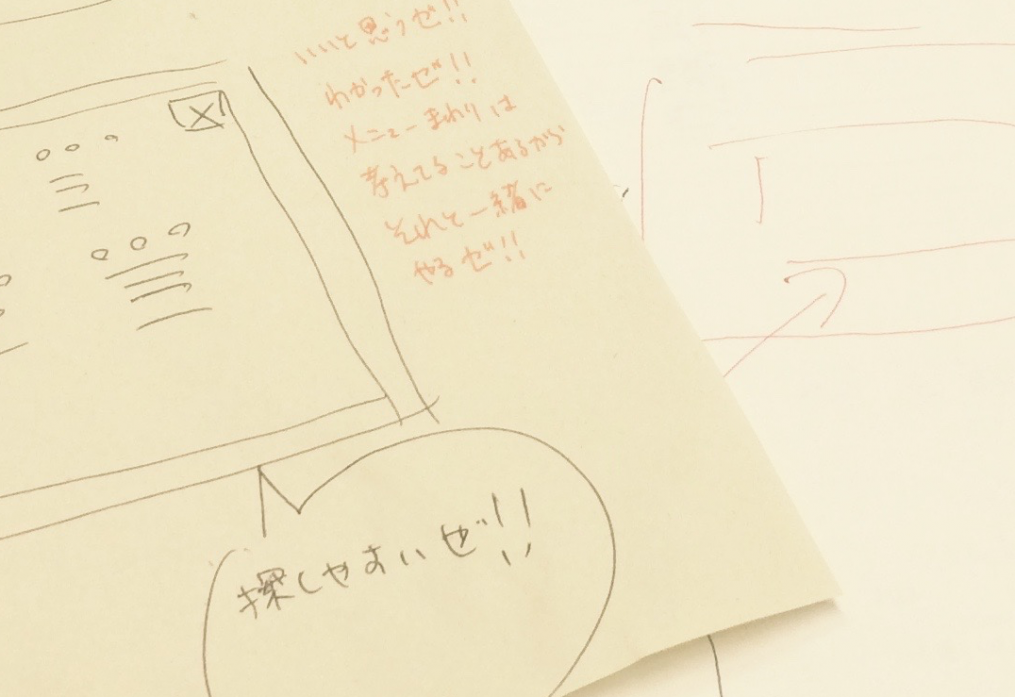 いいと思うぜ!!
わかったぜ!!
メニューまわりは
考えてることあるから
それと一緒に
やるぜ!!
探しやすいぜ!!